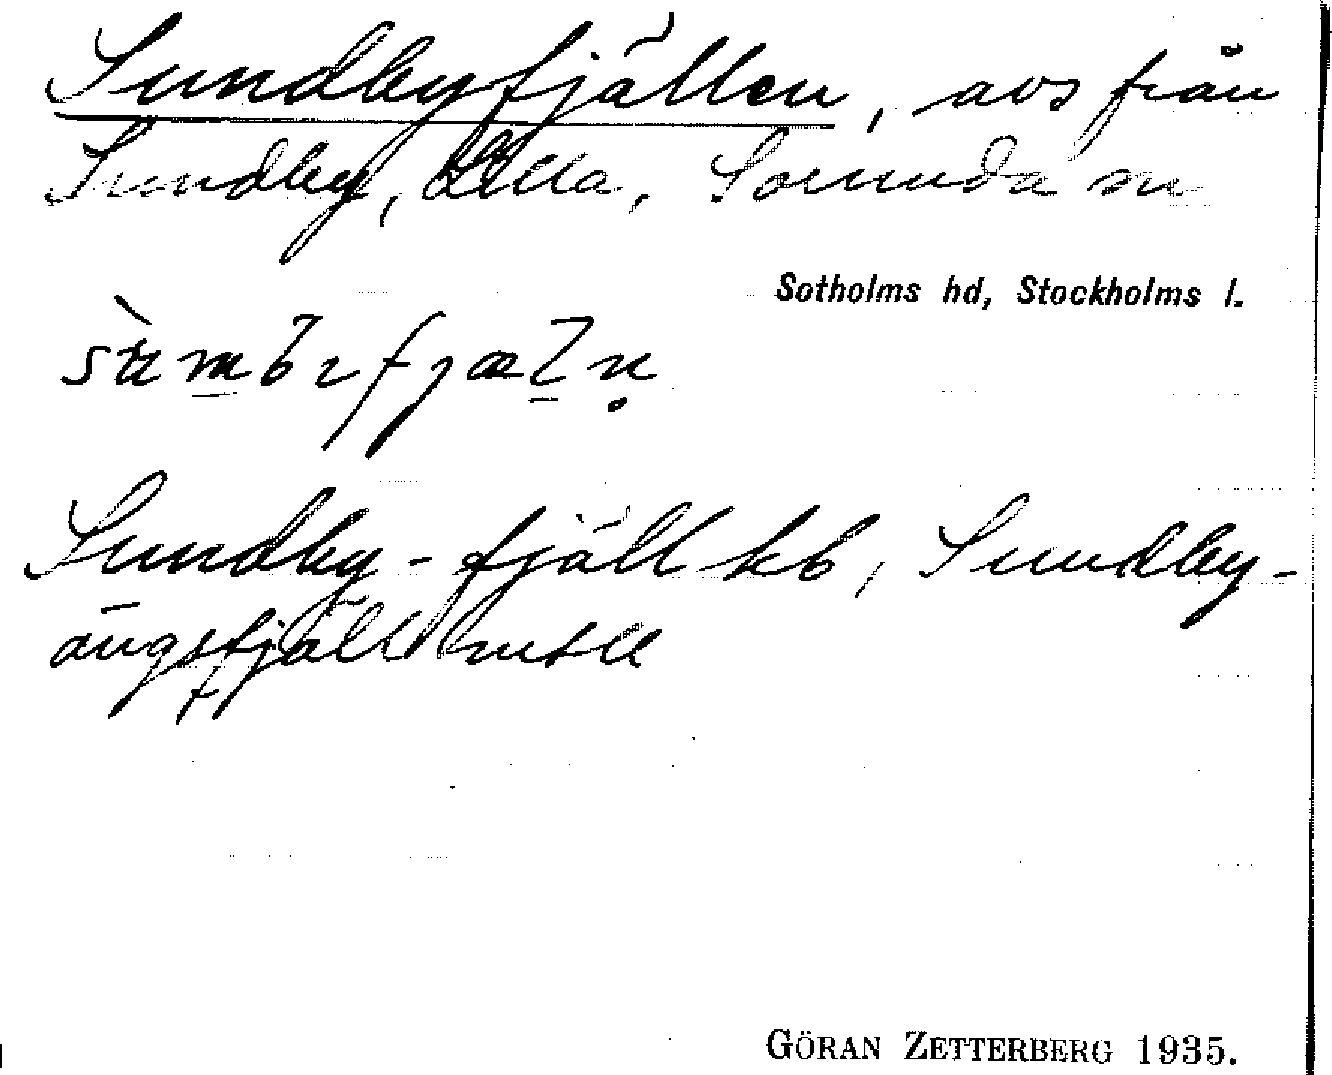 Sundbyfjällen, avs från
Sundby, Lilla, Sorunda sn
Sotholms hd, Stockholms l.
Sundby-fjäll kb, Sundby-
ängsfjäll
GÖRAN ZETTERBERG 1935.